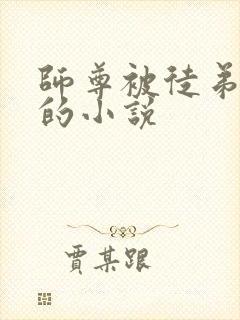 師尊被徒弟
的小說
賈某跟